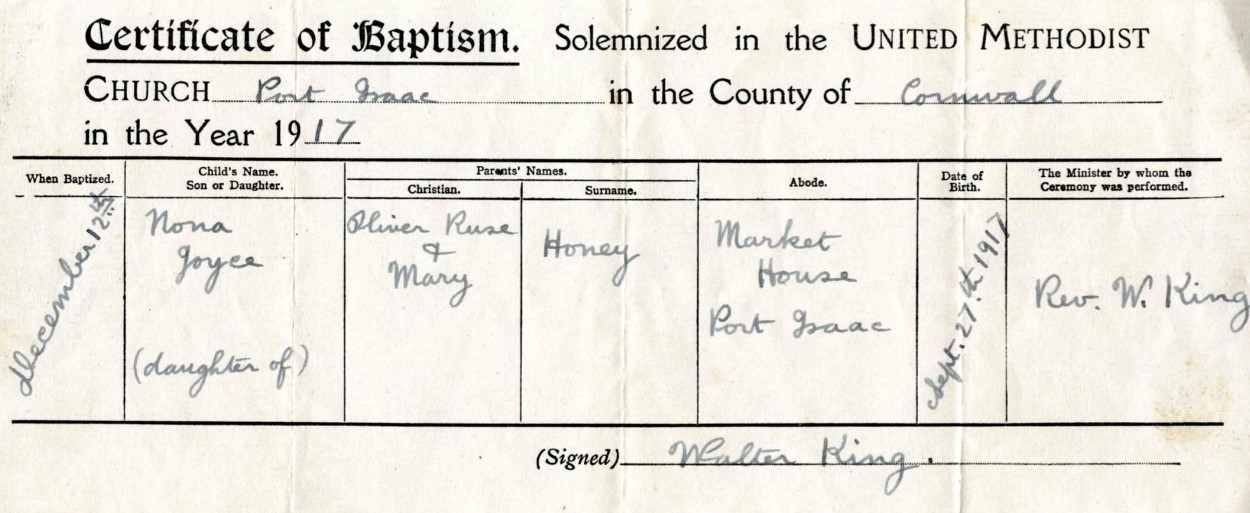 Certificate of Baptism. Solemnized in the UNITED METHODIST
CHURCH Port Isaac in the County of Cornwall
in the Year 1917
When Baptized.
Child's Name.
Son or Daughter.
Parents' Names.
Christian.
Surname.
Abode.
Date of
Birth.
The Minister by whom the
Ceremony was performed.
December 12th
Nona
Joyce
(daughter of)
Oliver Ruse
&
Mary
Honey
Market
House
Port Isaac
Sept. 27th 1917
Rev. W. King
(Signed) Walter King.